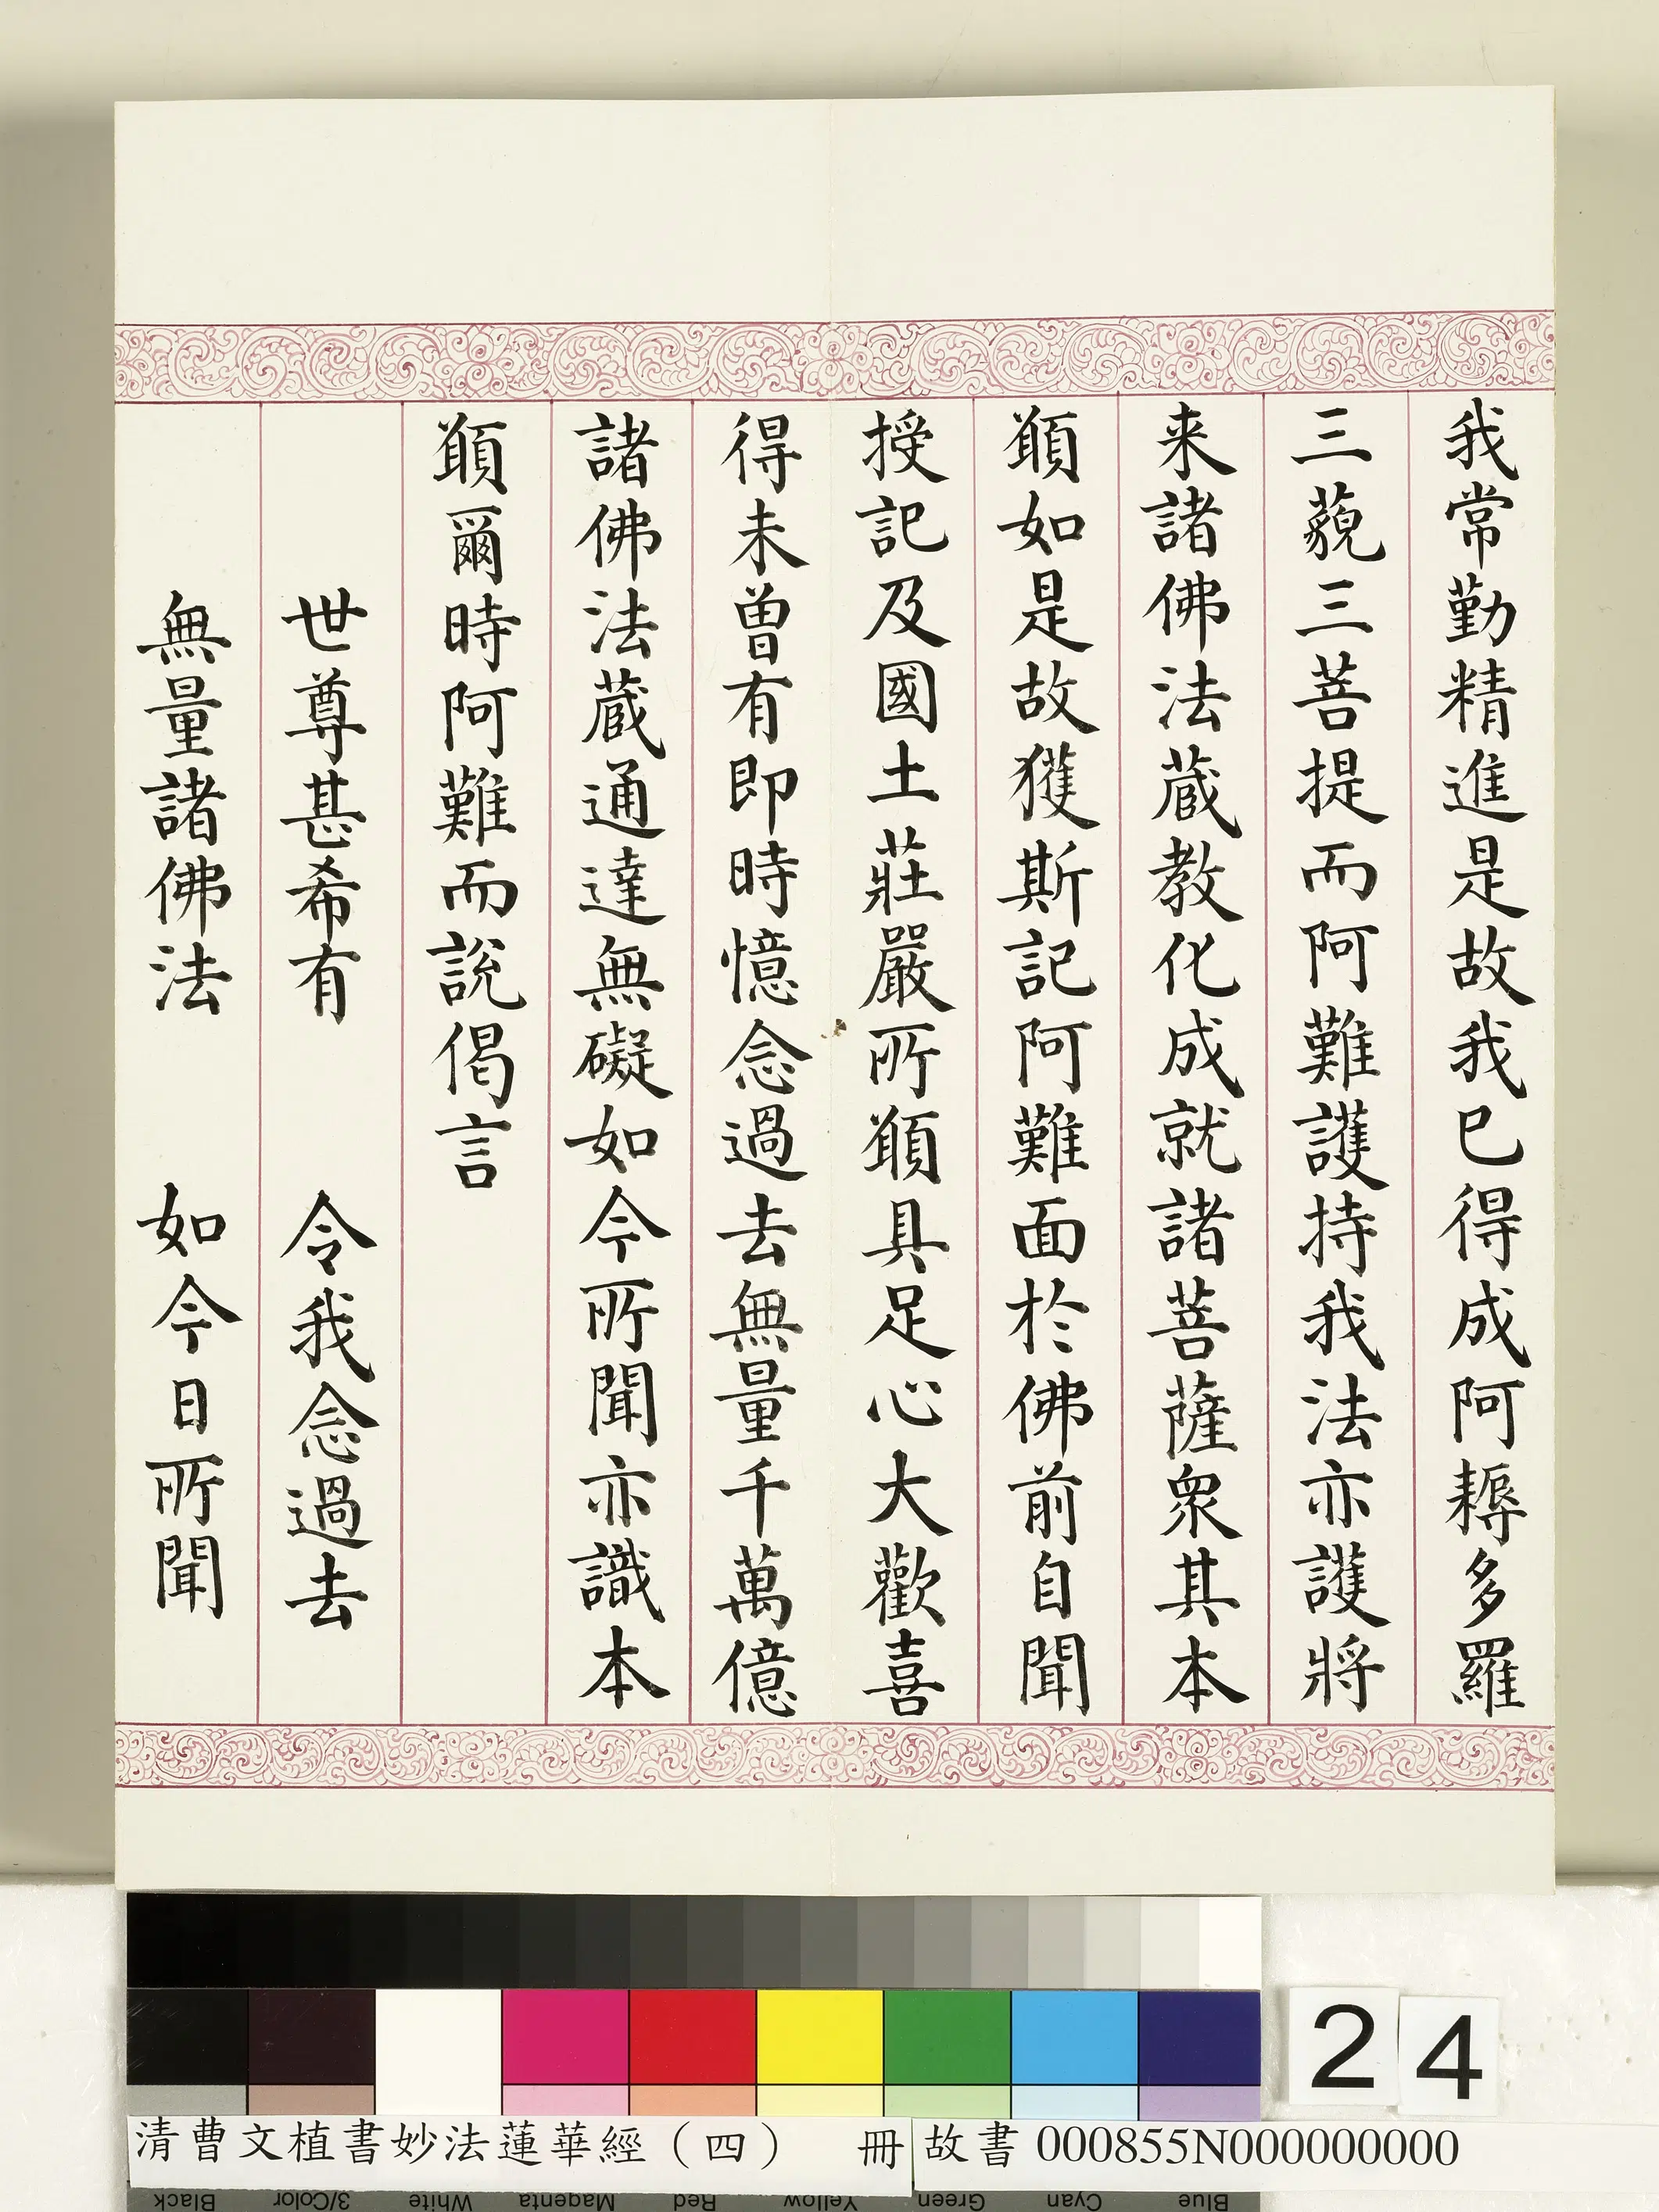 我常勤精進是故我已得成阿耨多羅
三藐三菩提而阿難護持我法亦護將
来諸佛法蔵教化成就諸菩薩衆其本
願如是故獲斯記阿難面於佛前自聞
授記及國土莊嚴所願具足心大歡喜
得未曾有即時憶念過去無量千萬億
諸佛法蔵通達無礙如今所聞亦識本
願爾時阿難而說偈言
世尊甚希有 令我念過去
無量諸佛法 如今日所聞
24
清曹文植書妙法蓮華經（四） 冊
故書 000855N000000000
Black 3/Color White Magenta Red Yellow Green Cyan Blue